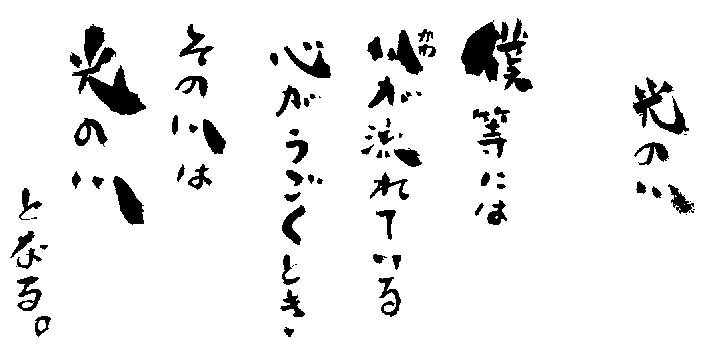 光の川
僕等には
川が流れている
かわ
心がうごくとき、
その川は
光の川
となる。